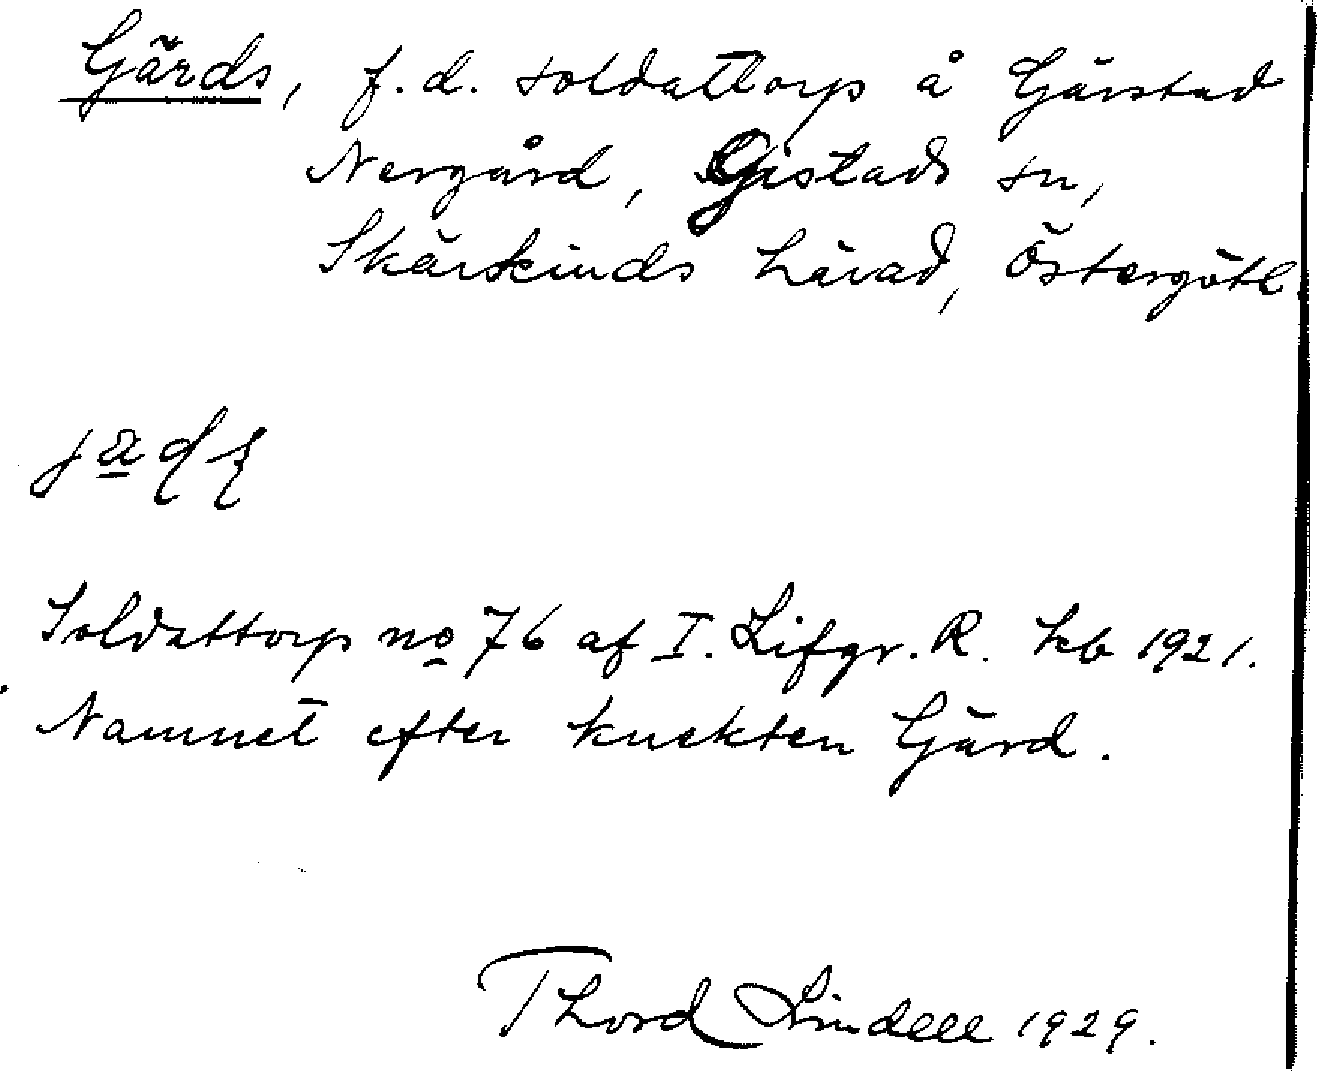 Gärds, f.d. soldattorp å Gärstad
Nergård, Gistads sn,
Skärkinds härad, Östergötl
Soldattorp no 76 af I. Lifgr. R. kb 1921.
Namnet efter knekten Gärd.
Thord Lindell 1929.